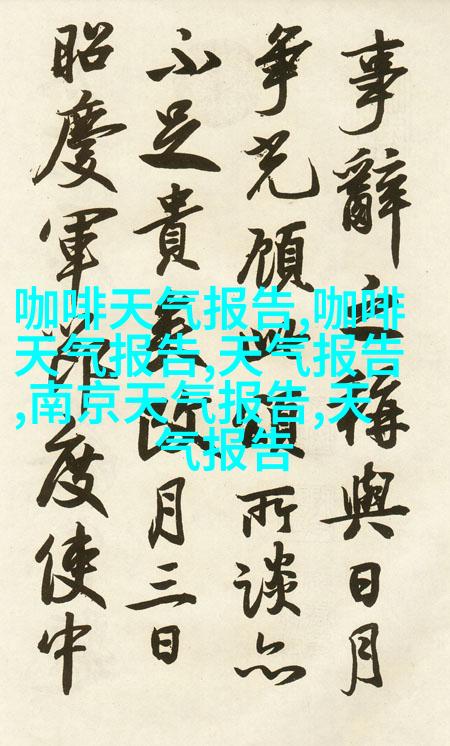 事辭之稱與日月
爭光顧此頌所談亦
不足貴矣政月三日
昭慶軍節度使中
咖啡天气报告,咖啡
天气报告,天气报告
,南京天气报告,天
气报告